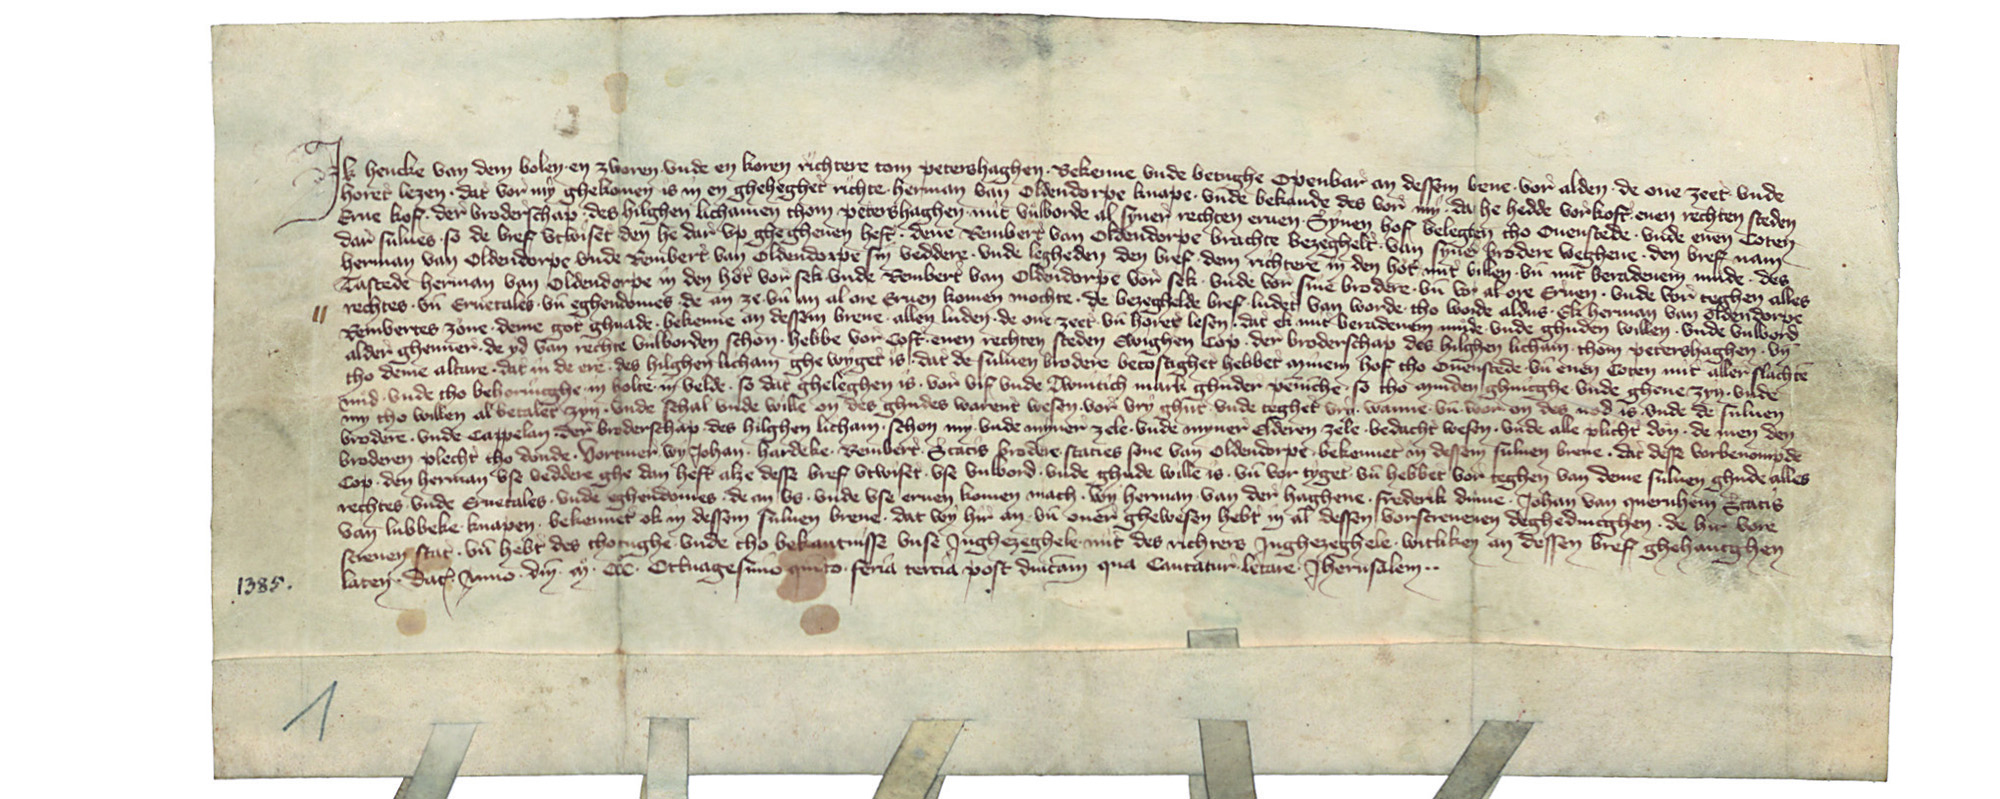 Ik hencke van dem bolen en zworen vnde en koren richtere tom petershaghen. Bekenne vnde betughe Openbar an dessem breue vor alden de one zeet vnde
horet lezen. dat vor my ghekomen is in en gheheghet richte herman van Oldendorpe knape. vnde bekande des vor my. dat he hedde vorkoft enen rechten steden
Erue kof. der broderschap des hilghen lichamen thom petershaghen mit vulborde al syner rechten eruen. Synen hof belegen tho Ouenstede. vnde enen Coten
dar sulues. so de bref vtwiset den he dar vp ghegheuen heft. dene Rembert van Oldendorpe brachte bezeghelt. van syner brodere weghene. den bref nam
herman van Oldendorpe vnde Rembert van Oldendorpe sin veddere. vnde legheden den bref dem richtere in den hot mit willen. vn mit beradenem mude. des
Tastede herman van Oldendorpe in den hot vor sek vnde Rembert van Oldendorpe vor sek. vnde vor sine brodere. vn vor al ore Eruen. vnde vor teghen alles
rechtes. vn Eruetales. vn eghendomes de an ze. vn an al ore Eruen komen mochte. de bezeghelde bref ludet van worde tho worde aldus. Ek herman van Oldendorpe
Rembertes zone. deme got ghnade. bekenne an dessem breue. allen luden. de one zeet. vn horet lesen. dat ek mit beradenem mude vnde ghuden willen. vnde vulbord
alder ghenner. de yd van rechte vulborden schon. hebbe vor Coft. enen rechten steden Ewighen Cop. der broderschap des hilghen licham. thom petershaghen. vn
tho deme altare. dat in de ere des hilghen licham ghe wyget is. dat de suluen brodere becostighet hebbet mynem hof tho Ouenstede. vn enen Coten mit aller slachte
nud. vnde tho behoringhe. in holte in velde. so dat gheleghen is. vor vif vnde Twintich mark ghuder penninghe. so tho minden ghinghe vnde gheue zyn. vnde
my tho willen al betalet zyn. vnde schal vnde wille on des ghudes warent wesen. vor vry ghut. vnde teghet vry. wanne. vn wor on des nod is. vnde de suluen
brodere. vnde Cappelan der broderschap des hilghen licham. schon my vnde myner zele. vnde myner Elderen zele bedacht wesen. vnde alle plicht don. de men den
broderen plecht tho donde. Vortmer wy Johan. hardeke. Rembert. Statis brodere staties sone van Oldendorpe. bekennet in dessem suluen breue. dat desse vorbenomde
Cop. den herman vse veddere ghe dan heft alze desse bref vtwiset. vse vulbord. vnde ghude wille is. vn vor tyget. vn hebbet vor teghen van deme suluen ghude alles
rechtes vnde Eruetales. vnde eghendomes. de an vs. vnde vse eruen komen mach. wy herman van der haghene. frederik dume. Johan van quernhem Statis
van lubbeke knapen. bekennet ok in dessem suluen breue. dat wy hir an. vn ouer ghewesen hebt in al dessen vorscreuenen deghedinghen. de hir vore
screuen stat. vn hebt des thotughe vnde tho bekantnisse vnse Inghezeghele mit des richters Inghezeghele. witliken an dessen bref ghehanghen
laten. Dat. Anno. dni. M. CCC. Octuagesimo quinto. feria tercia post dnicam qua Cantatur letare Jherusalem..
1385.
1